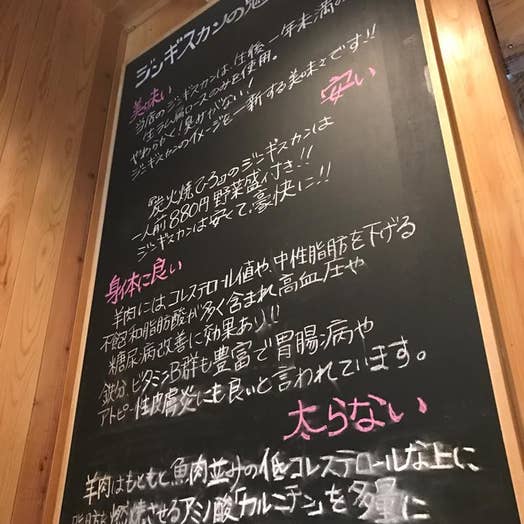 ジンギスカンの魅
美味い
当店のジンギスカンは、生後一年未満の
生ラム肩ロースのみを使用。
やわらかく!臭サがない!
ジンギスカンのイメージを一新する美味さです!!
安い
炭火焼ひろ的のジンギスカンは
一人前880円野菜盛付き!!
ジンギスカンは安くて、豪快に!!
身体に良い
羊肉には、コレステロール値や、中性脂肪を下げる
不飽和脂肪酸が多く含まれ高血圧や
糖尿病改善に効果あり!!
鉄分、ビタミンB群も豊富で胃腸病や
アトピー性皮膚炎にも良いと言われています。
太らない
羊肉はもともと魚肉並みの低コレステロールな上に
脂肪を燃焼させるアミノ酸「カルニチン」を多量に